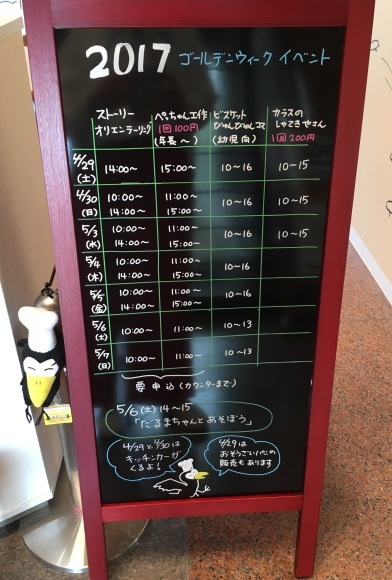 2017 ゴールデンウィーク イベント
ストーリーオリエンテーリング ぺっちゃん工作 1回100円 (年長〜) ビスケットぴょんぴょん工々 (幼児向) カラスのしゃてきやさん 1回200円
4/29(土) 14:00〜 15:00〜 10〜16 10〜15
4/30(日) 10:00〜 14:00〜 11:00〜 15:00〜 10〜16 10〜15
5/3(水) 10:00〜 14:00〜 11:00〜 15:00〜 10〜16 10〜15
5/4(木) 10:00〜 14:00〜 11:00〜 15:00〜 10〜16
5/5(金) 10:00〜 14:00〜 11:00〜 15:00〜 10〜16
5/6(土) 10:00〜 11:00〜 10〜13
5/7(日) 10:00〜 11:00〜 10〜13
要申込(カウンターまで)
5/6(土) 14〜15
「だるまちゃんとあそぼう」
4/29と4/30は
キッチンカーが
くるよ!
4/29は
おそうざいパンの
販売もあります